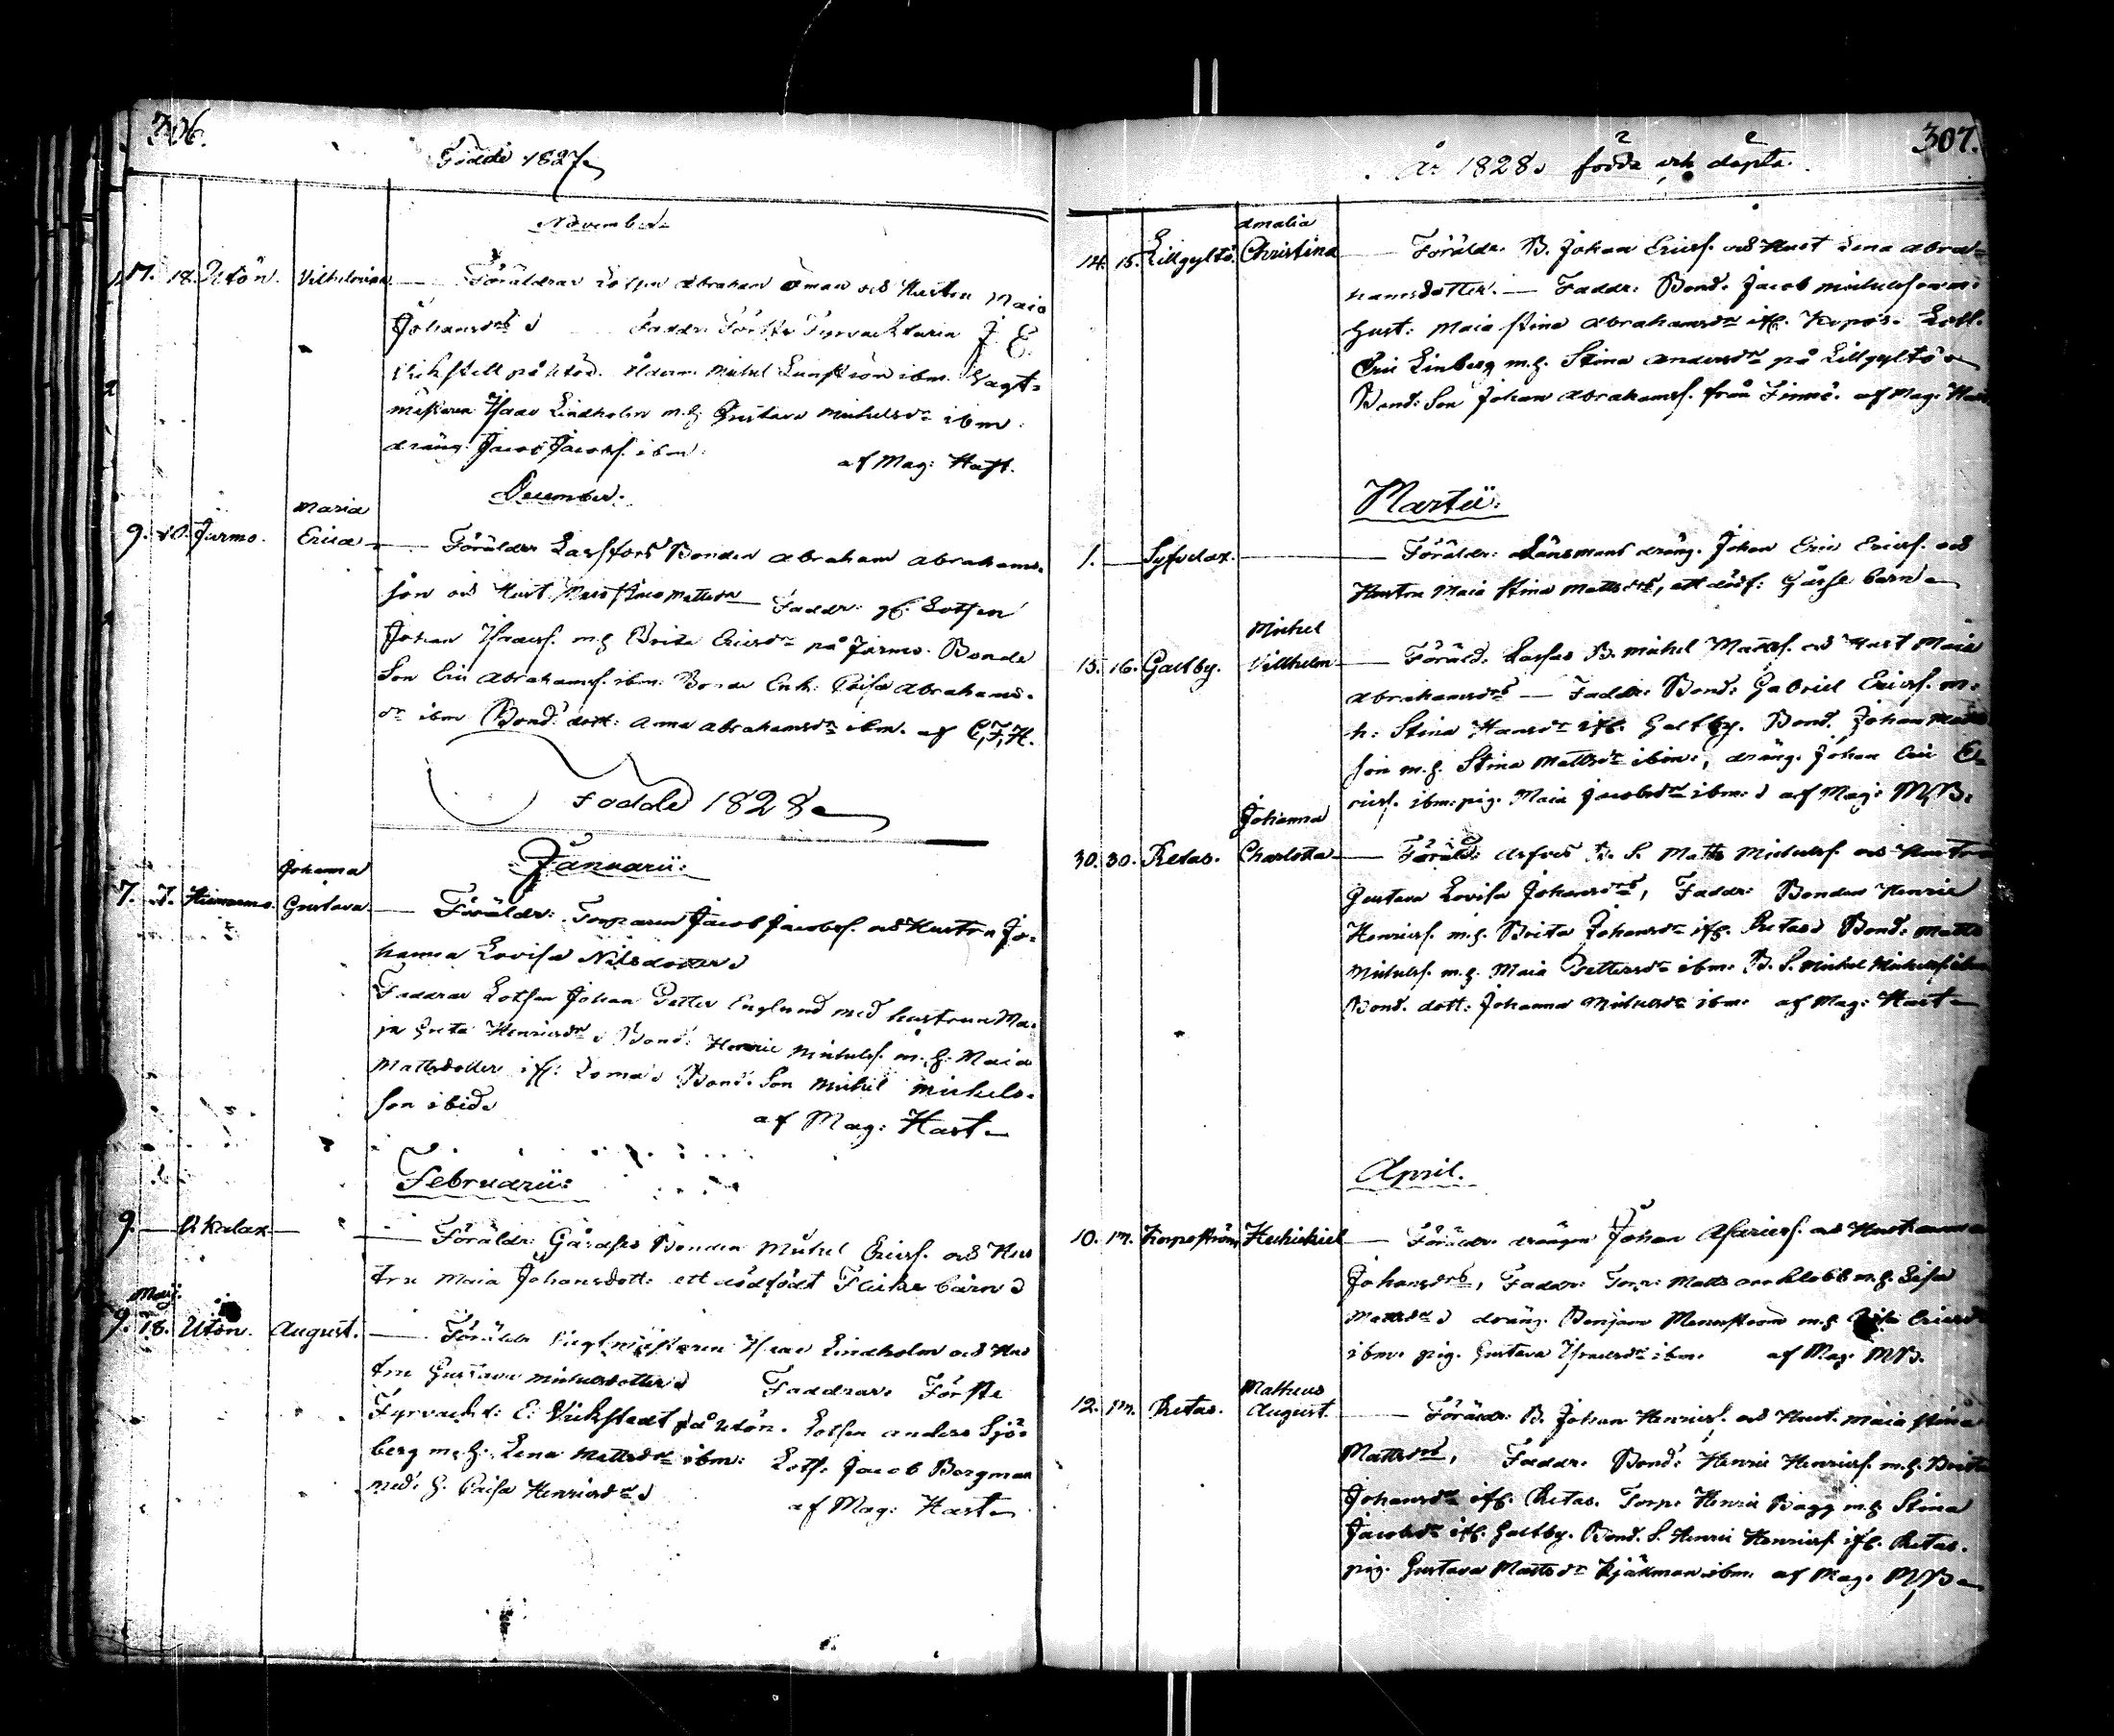 306.
Födde 1827
November
17. 18. Utön. Vilhelmina — Föräldrar Lotsen Abraham Öman och Hustru Maia
Johansdr Faddr: Förste Fyrvacktaren J. E.
Vikstedt på Utön. Ålderm. Michel ibm. Vagt=
mästaren Isaac Lindholm m.h. Gustava Michelsdr ibm
dräng Jacob Jacobsf. ibm.
af Mag: Hast.
December.
Maria
9. 10. Jurmo. Erica — Föräldr: Bonden Abraham Abrahams=
son och Hust. Maia Stina Mattsdr Faddr: Lotsen
Johan Isacsf. m.h. Brita Ericsdr på Jurmo. Bonde
Son Eric Abrahamsf. ibm. Bonde Enk: Caisa Abrahams=
dr ibm Bond. dott: Anna Abrahamsdr ibm. af C,F,H.
Födde 1828
Januarii:
Johanna
7. 7. Gustava — Föräldr: Torparen Jacob Jacobsf. och Hustru Jo=
hanna Lovisa Nilsdotter
Faddrar Lotsen Johan Petter Englund med hustrun Ma=
ja Greta Henricsdr Bond: Henric Michelsf. m. h: Maia
Mattsdotter if: Bond. Son Michel Michels=
son ibid.
af Mag: Hast
Februarii:
9. — — Föräldr: Bonden Michel Ericsf. och Hus
tru Maia Johansdott: ett dödfödt Flicke barn
Maji
9. 18. Utön. August. — Föräldr: Vagtmästaren Isaac Lindholm och Hus
tru Gustava Michelsdotter Faddrar: Förste
Fyrvackt: E: Vickstedt på Utön. Lotsen Anders Sjö=
berg m.h. Lena Mattsdr ibm: Lots. Jacob Borgman
med: h. Caisa Henricsdr
af Mag: Hast
307.
År 1828 födda och döpta.
Amalia
14. 15. Lillgyltö. Christina — Föräldr. B. Johan Ericsf. och Hust Lena Abra=
hamsdotter. — Faddr: Bond. Jacob Michelsson m.
Hust: Maia Stina Abrahamsdr
Eric Linberg m.h. Stina Andersdr på Lillgyltö
Bond: Son Johan Abrahamsf. från Finnö. af Mag: Hast
Martii:
1. — — Föräldr: Länsmans dräng. Johan Eric Ericsf. och
Hustru Maia Stina Mattsdr, ett dödf: Gåsse barn
Michel
15. 16. Galtby. Villhelm — Föräld. B. Michel Mattsf. och Hust Maia
Abrahamsdr — Faddr: Bond: Gabriel Ericsf. m:
h: Stina Hansdr Galtby. Bond. Johan Matts
son m.h. Stina Mattsdr ibm:, dräng. Johan Eric E=
ricsf. ibm: pig. Maia Jacobsdr ibm: af Mag: M,B.
Johanna
30. 30. Retas. Charlotta — Föräld: B. S. Matts Michelsf. och Hustru
Gustava Lovisa Johansdr, Faddr: Bonden Henric
Henricsf. m.h. Brita Johansdr Retas Bond: Matts
Michelsf. m.h. Maia Pettersdr ibm. B. S. Michel Michelsf. ibm
Bond. dott: Johanna Michelsdr ibm. af Mag: Hast
April.
10. 17. Korpoström — Föräldr. drängen Johan och Hust Anna
Johansdr, Faddr: Torp: Matts m.h. Lisa
Mattsdr dräng. Benjam m.h. Ericsdr
ibm. pig. Gustava ibm. af Mag. M.B.
Matheus
12. 17. Retas. August — Föräldr: B. Johan Henricsf. och Hust. Maia Stina
Mattsdr, Faddr. Bond: Henric Henricsf. m.h. Brita
Johansdr Retas. Torp. Henric Bagg m.h. Stina
Jacobsdr Galtby. Bond. S. Henric Henricsf. Retas.
pig. Gustava Mattsdr ibm. af Mag. M,B